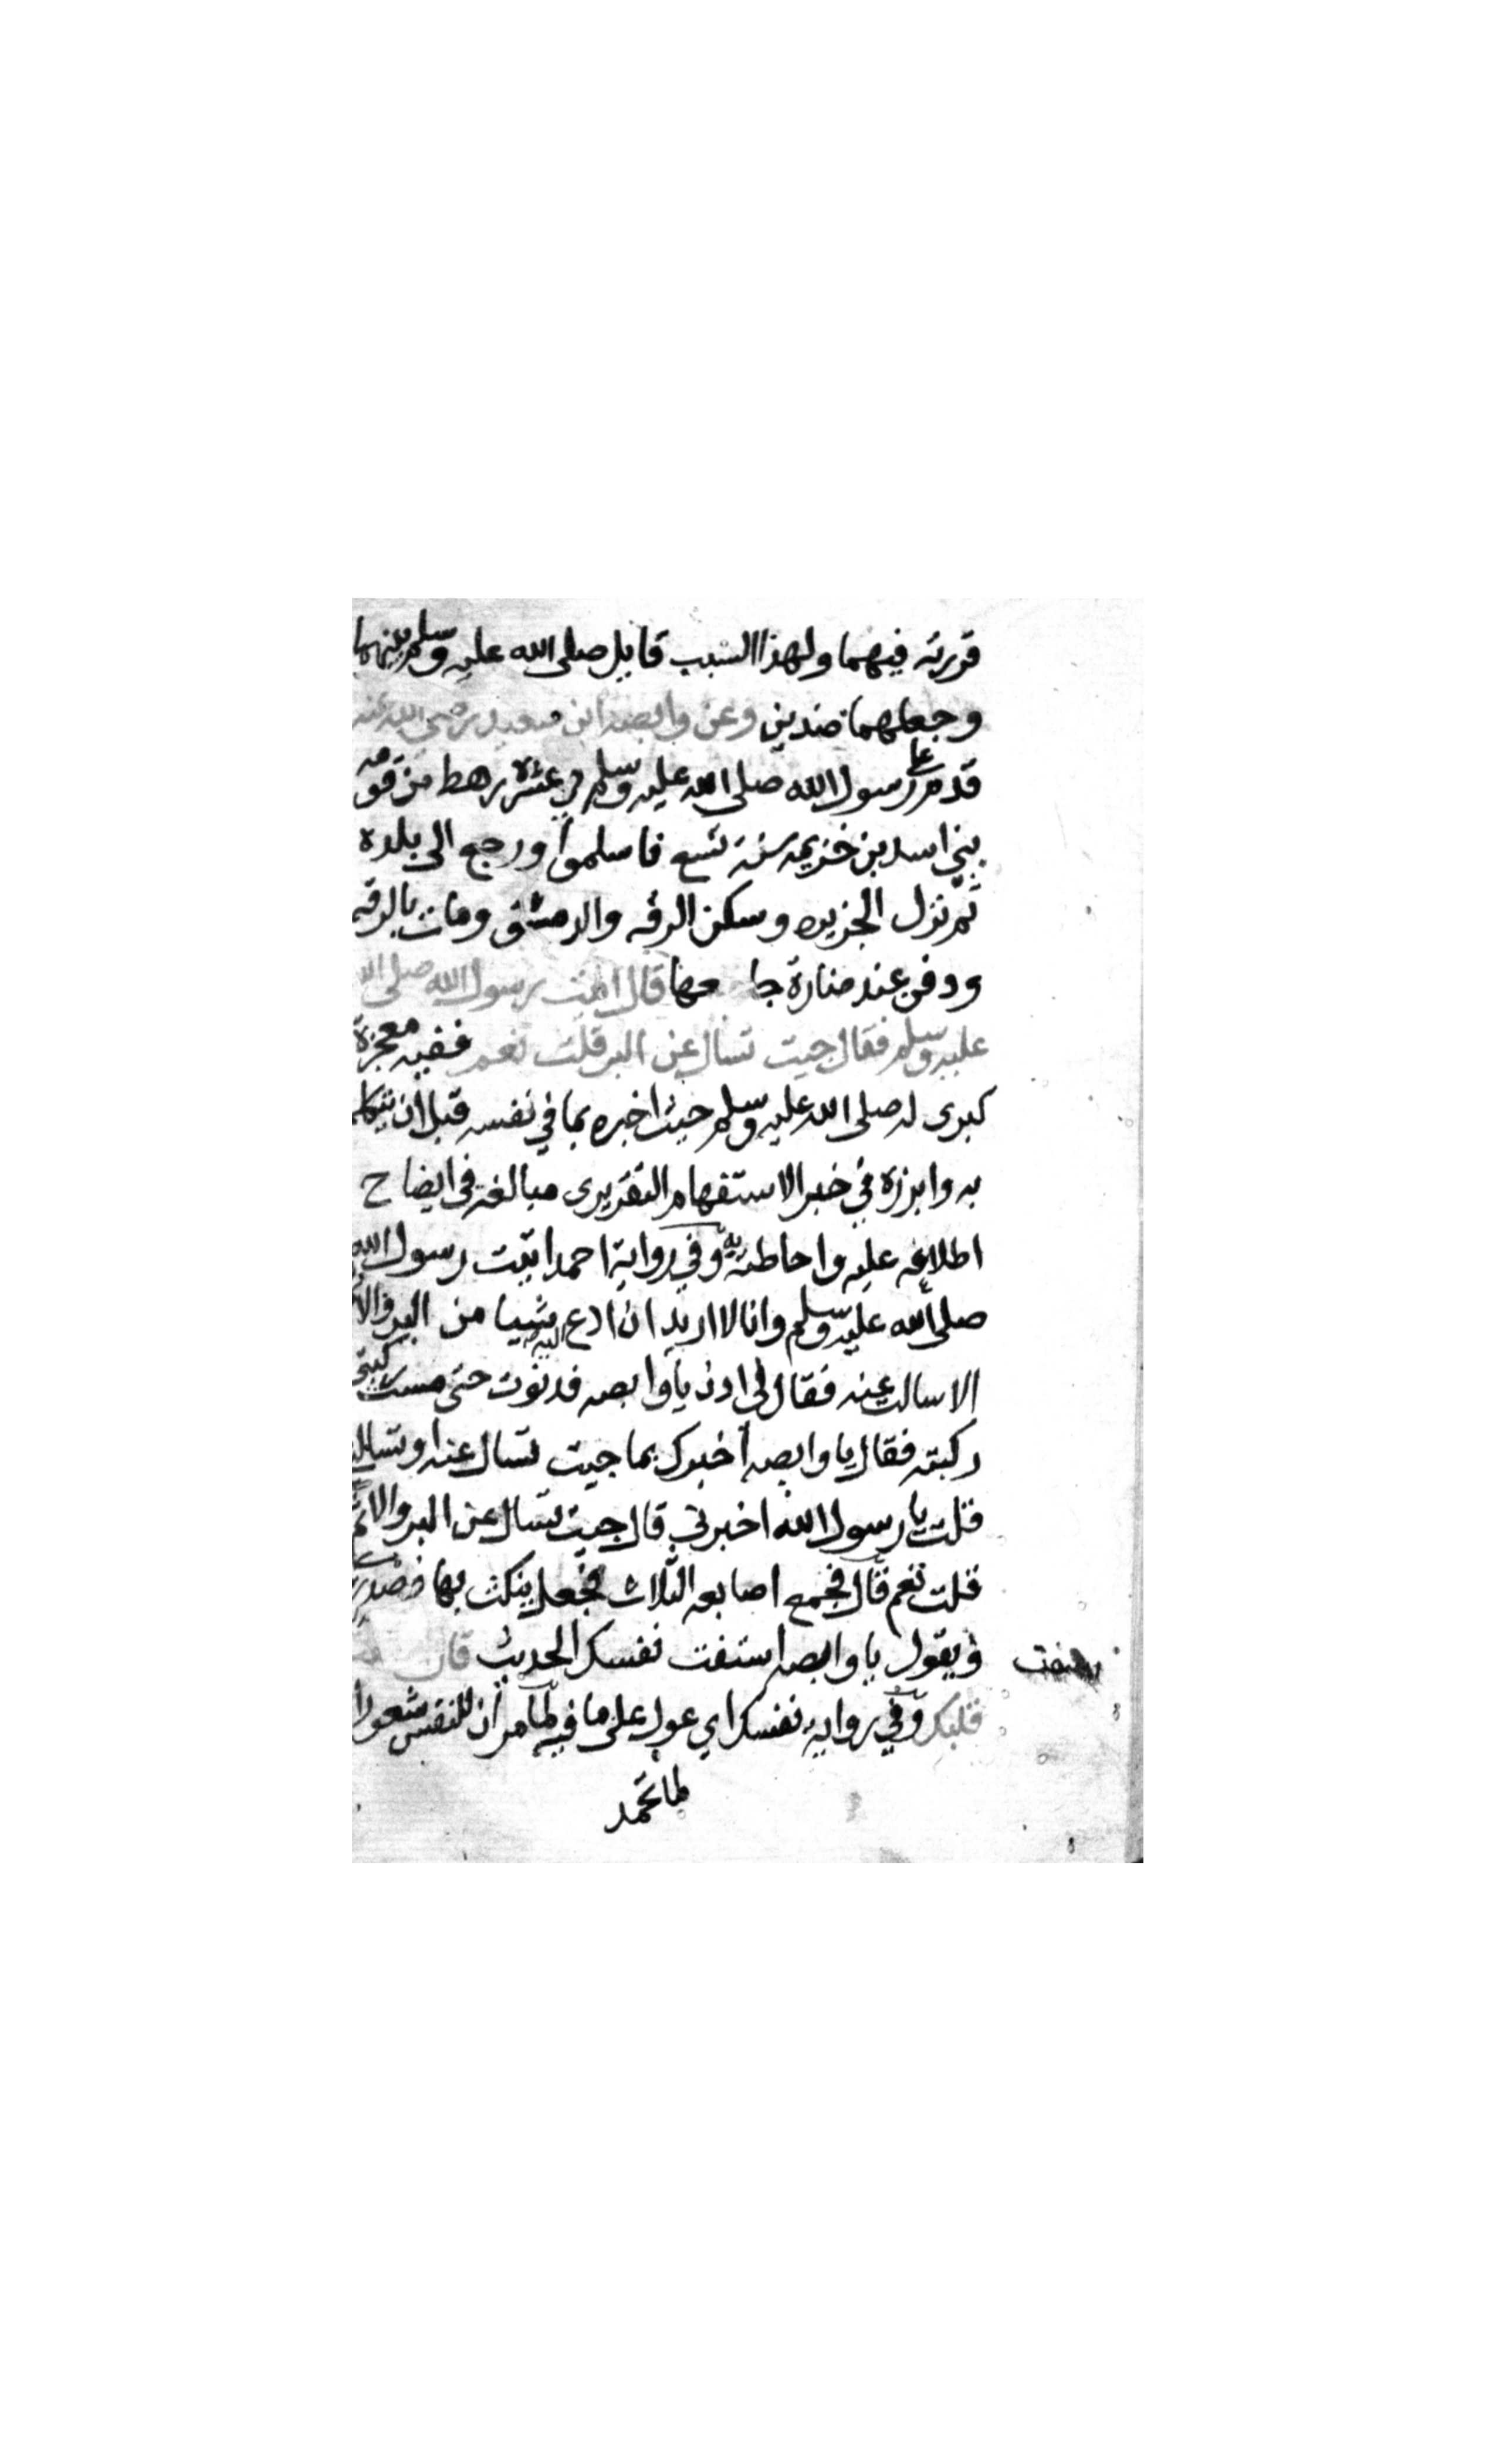 قررته فيهما ولهذا السبب قابل صلى الله عليه وسلم بينهما
وجعلهما ضدين وعن وابصة ابن معبد رضي الله عنه
قدم على رسول الله صلى الله عليه وسلم في عشرة رهط من قومه
بني اسد بن خزيمه سنة تسع فاسلموا ورجع الى بلاده
ثم نزل الجزيره وسكن الرقه والدمشق ومات بالرقه
ودفن عند منارة جامعها قال اتيت رسول الله صلى الله
عليه وسلم فقال جيت تسال عن البر قلت نعم ففيه معجزة
كبرى له صلى الله عليه وسلم حيث اخبره بما في نفسه قبل ان يتكلم
به وابرزه في خبر الاستفهام التقريرى مبالغة في ايضاح
اطلاعه عليه واحاطته به وفي رواية احمد اتيت رسول الله
صلى الله عليه وسلم وانا لا اريد ان ادع شيا من البر والاثم
الا سالت عنه فقال لي ادن يا وابصه فدنوت حتى مست ركبتي
ركبته فقال يا وابصه أخبرك بما جيت تسال عنه او تسال
قلت يا رسول الله اخبرني قال جيت تسال عن البر والاثم
قلت نعم قال فجمع اصابعه الثلاث فجعل ينكث بها في صدرى
ويقول يا وابصه استفت نفسك الحديث قال
قلبك وفي رواية نفسك اي عول على ما فيه لما مر ان للنفس شعورا
بما تحمد